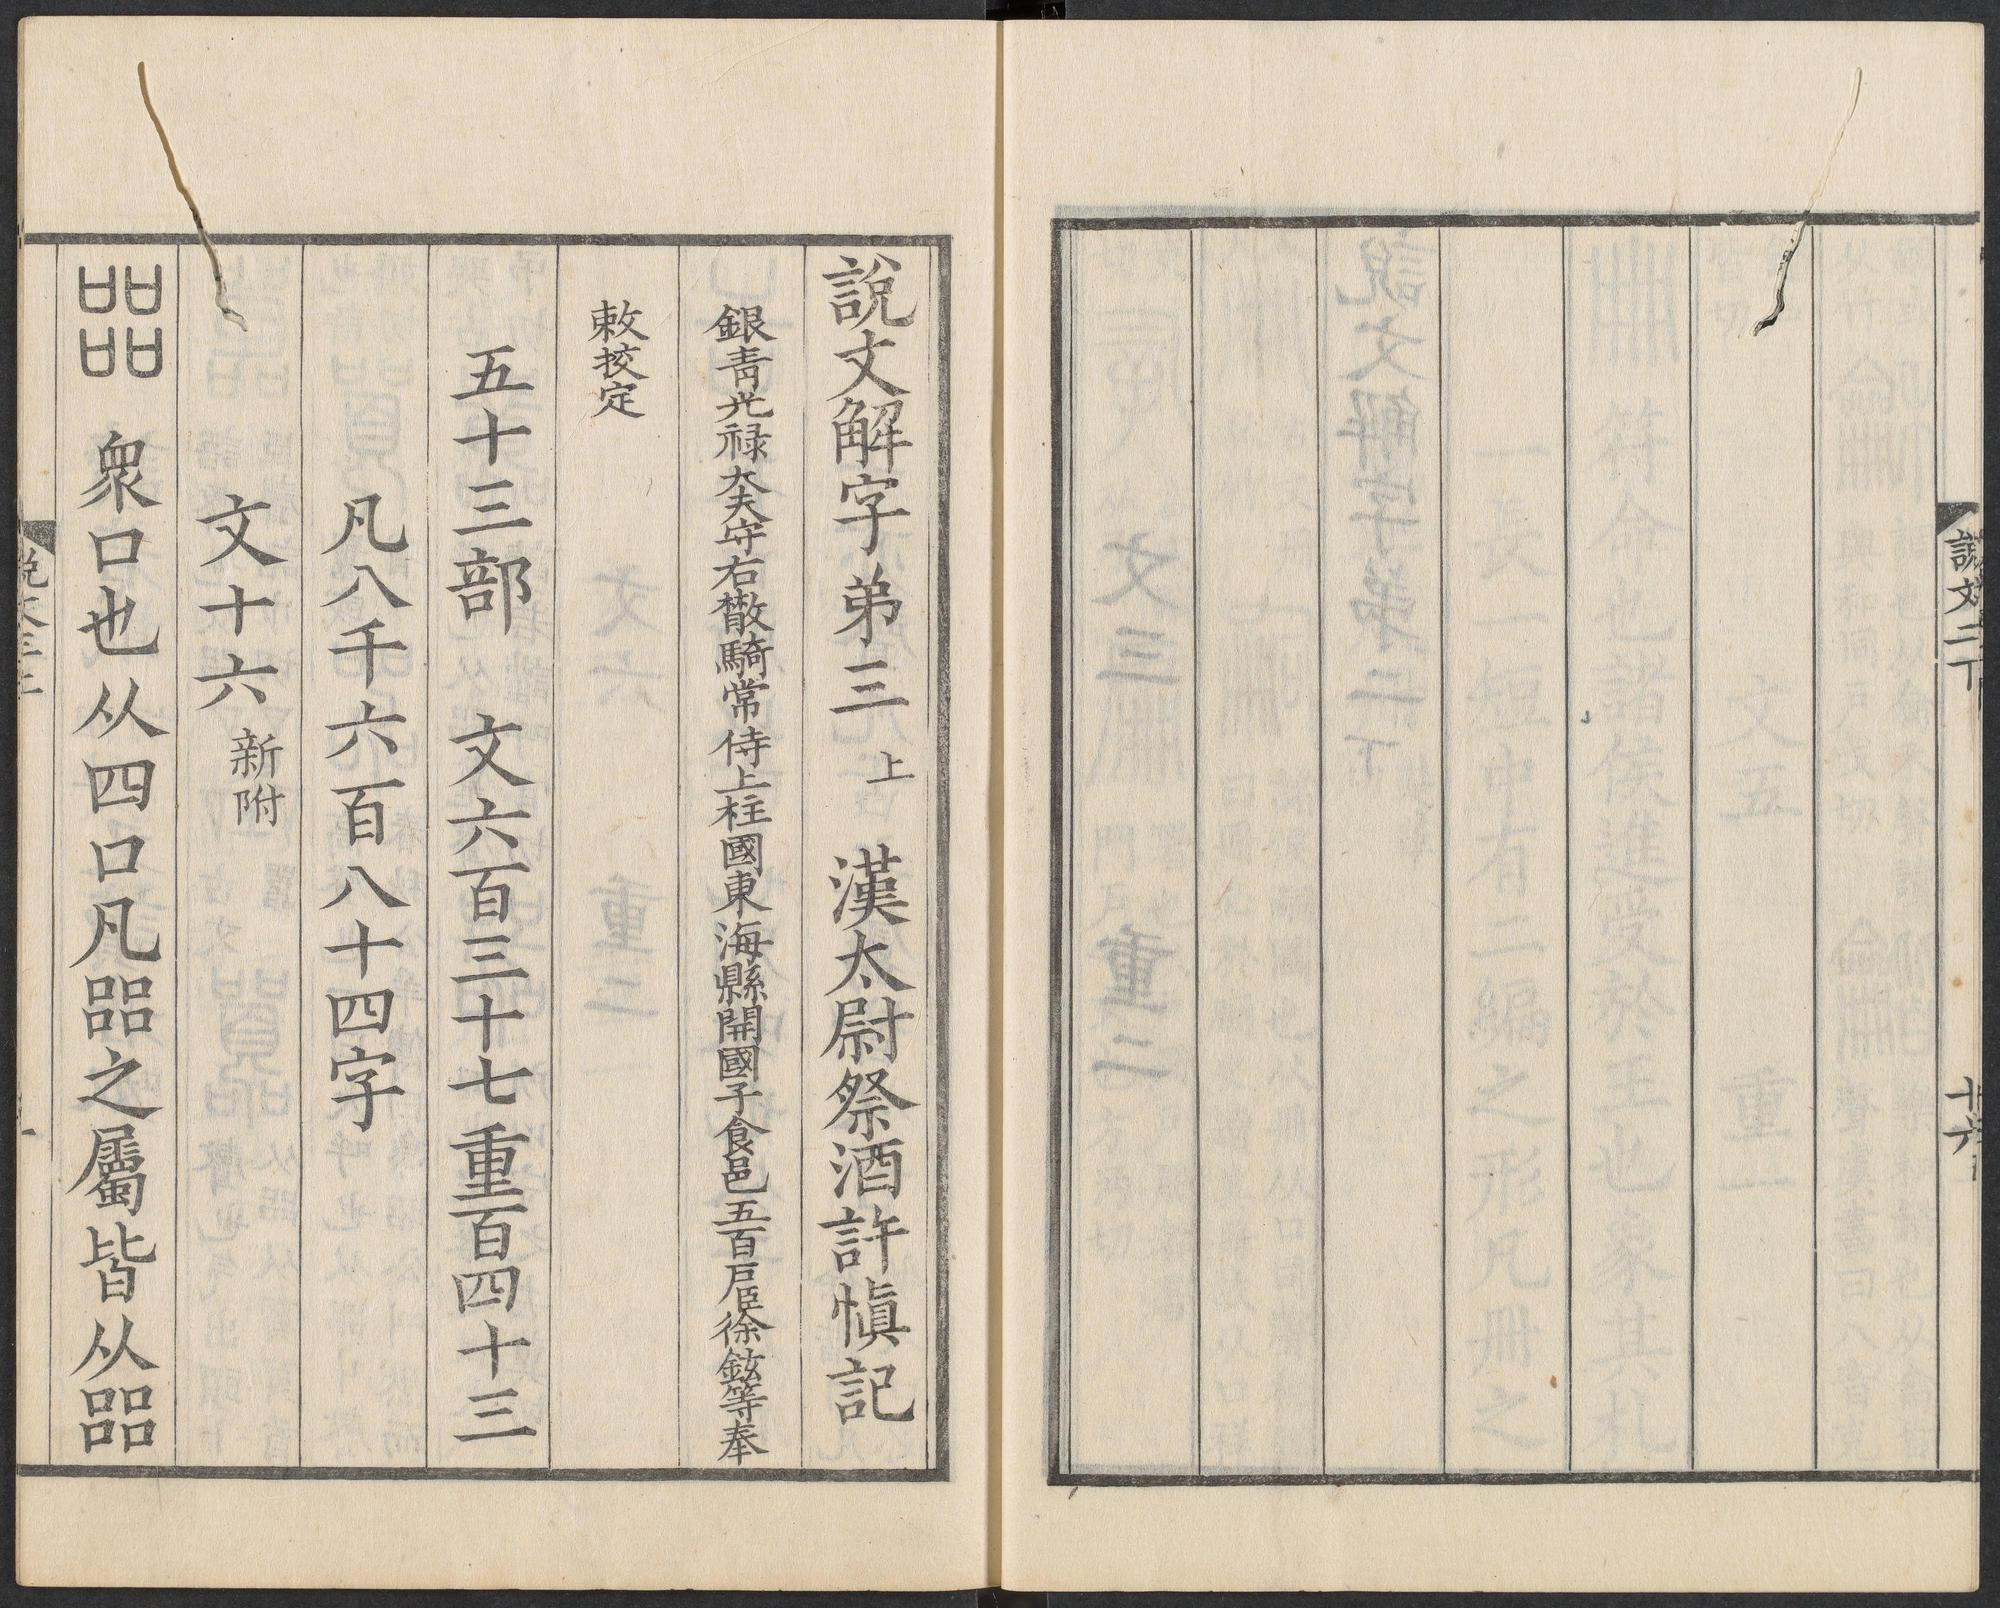 説文二下
十六
説文解字弟三 上 漢太尉祭酒許慎記
銀青光禄大夫守右散騎常侍上柱國東海縣開國子食邑五百戶臣徐鉉等奉
敕挍定
五十三部 文六百三十七 重百四十三
凡八千六百八十四字
文十六 新附
㗊 衆口也从四口凡㗊之屬皆从㗊